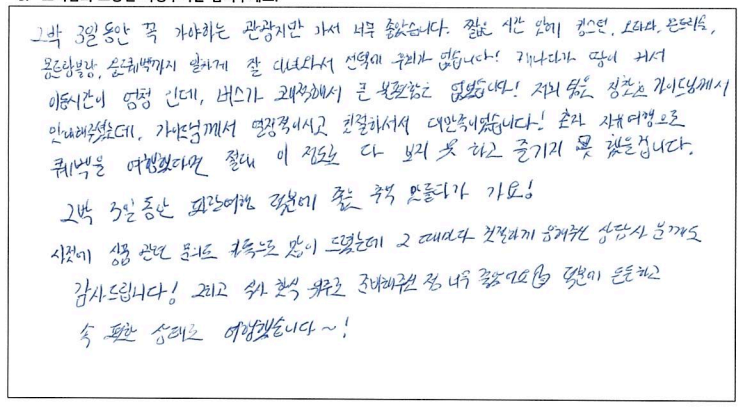 2박 3일동안 꼭 가야하는 관광지만 가서 너무 좋았습니다. 짧은 시간 안에 킹스턴, 오타와, 몬트리올,
몽트랑블랑, 퀘벡까지 알차게 잘 다녀와서 선택에 후회가 없습니다! 캐나다가 땅이 커서
이동시간이 엄청 긴데, 버스가 쾌적해서 큰 불편함은 없었습니다! 저희 팀은 가이드님께서
안내해주셨는데, 가이드님께서 열정적이시고 친절하셔서 대만족이었습니다! 혼자 자유여행으로
퀘벡을 여행했다면 절대 이 정도로 다 보지 못 하고 즐기지 못 했을겁니다.
2박 3일동안 파란여행 덕분에 좋은 추억 만들다가 가요!
사전에 상품 관련 문의도 카톡으로 많이 드렸는데 그 때마다 친절하게 응해주신 상담사 분께도
감사드립니다! 그리고 식사 한식 위주로 준비해주신 점 너무 좋았어요 덕분에 든든하고
속 편한 상태로 여행했습니다~!